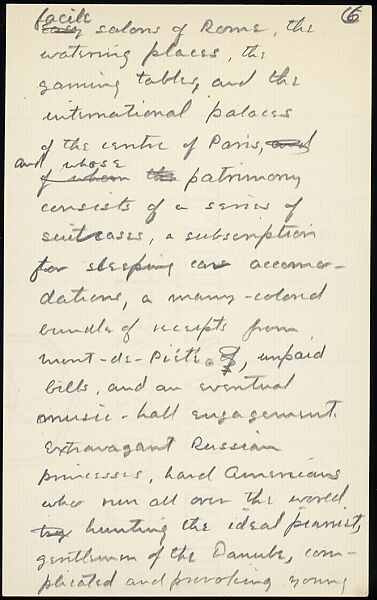 facile 6
easy salons of Rome, the
watering places, the
gaming tables, and the
international palaces
of the centre of Paris, and
and whose
of whom the patrimony
consists of a series of
suitcases, a subscription
for sleeping car accomo-
dations, a many-colored
bundle of receipts from
mont-de-Piété, unpaid
bills, and an eventual
music-hall engagement.
Extravagant Russian
princesses, hard Americans
who run all over the world
hunting the ideal pianist,
gentlemen of the Danube, com-
plicated and provoking young